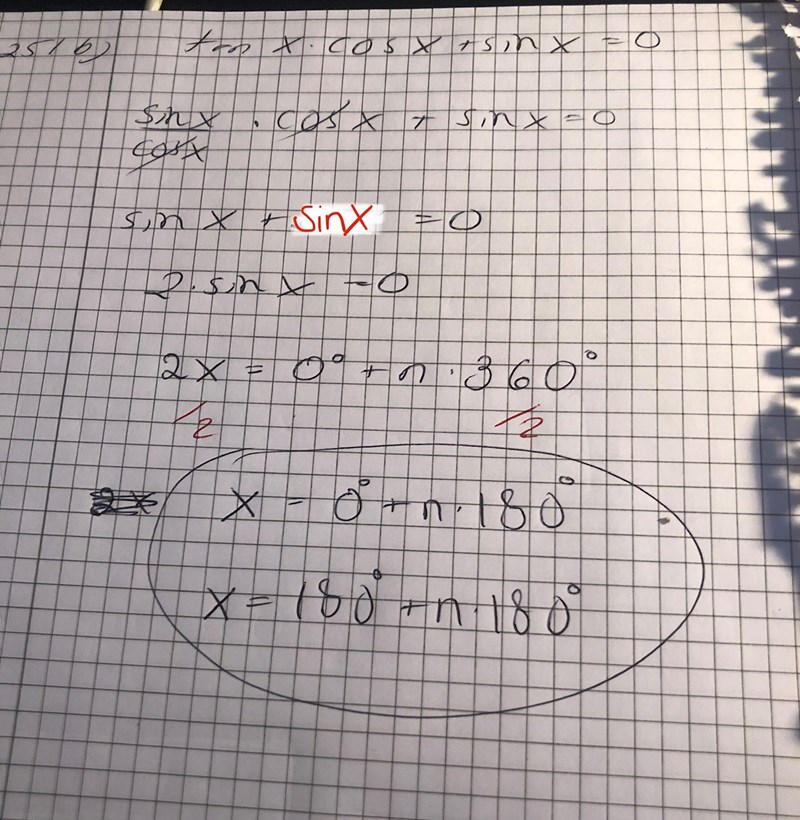 251 b) tan x · cos x + sin x = 0
sin x / cos x · cos x + sin x = 0
sin x + sin x = 0
2 · sin x = 0
2x = 0° + n · 360°
/2 /2
x = 0° + n · 180°
x = 180° + n · 180°